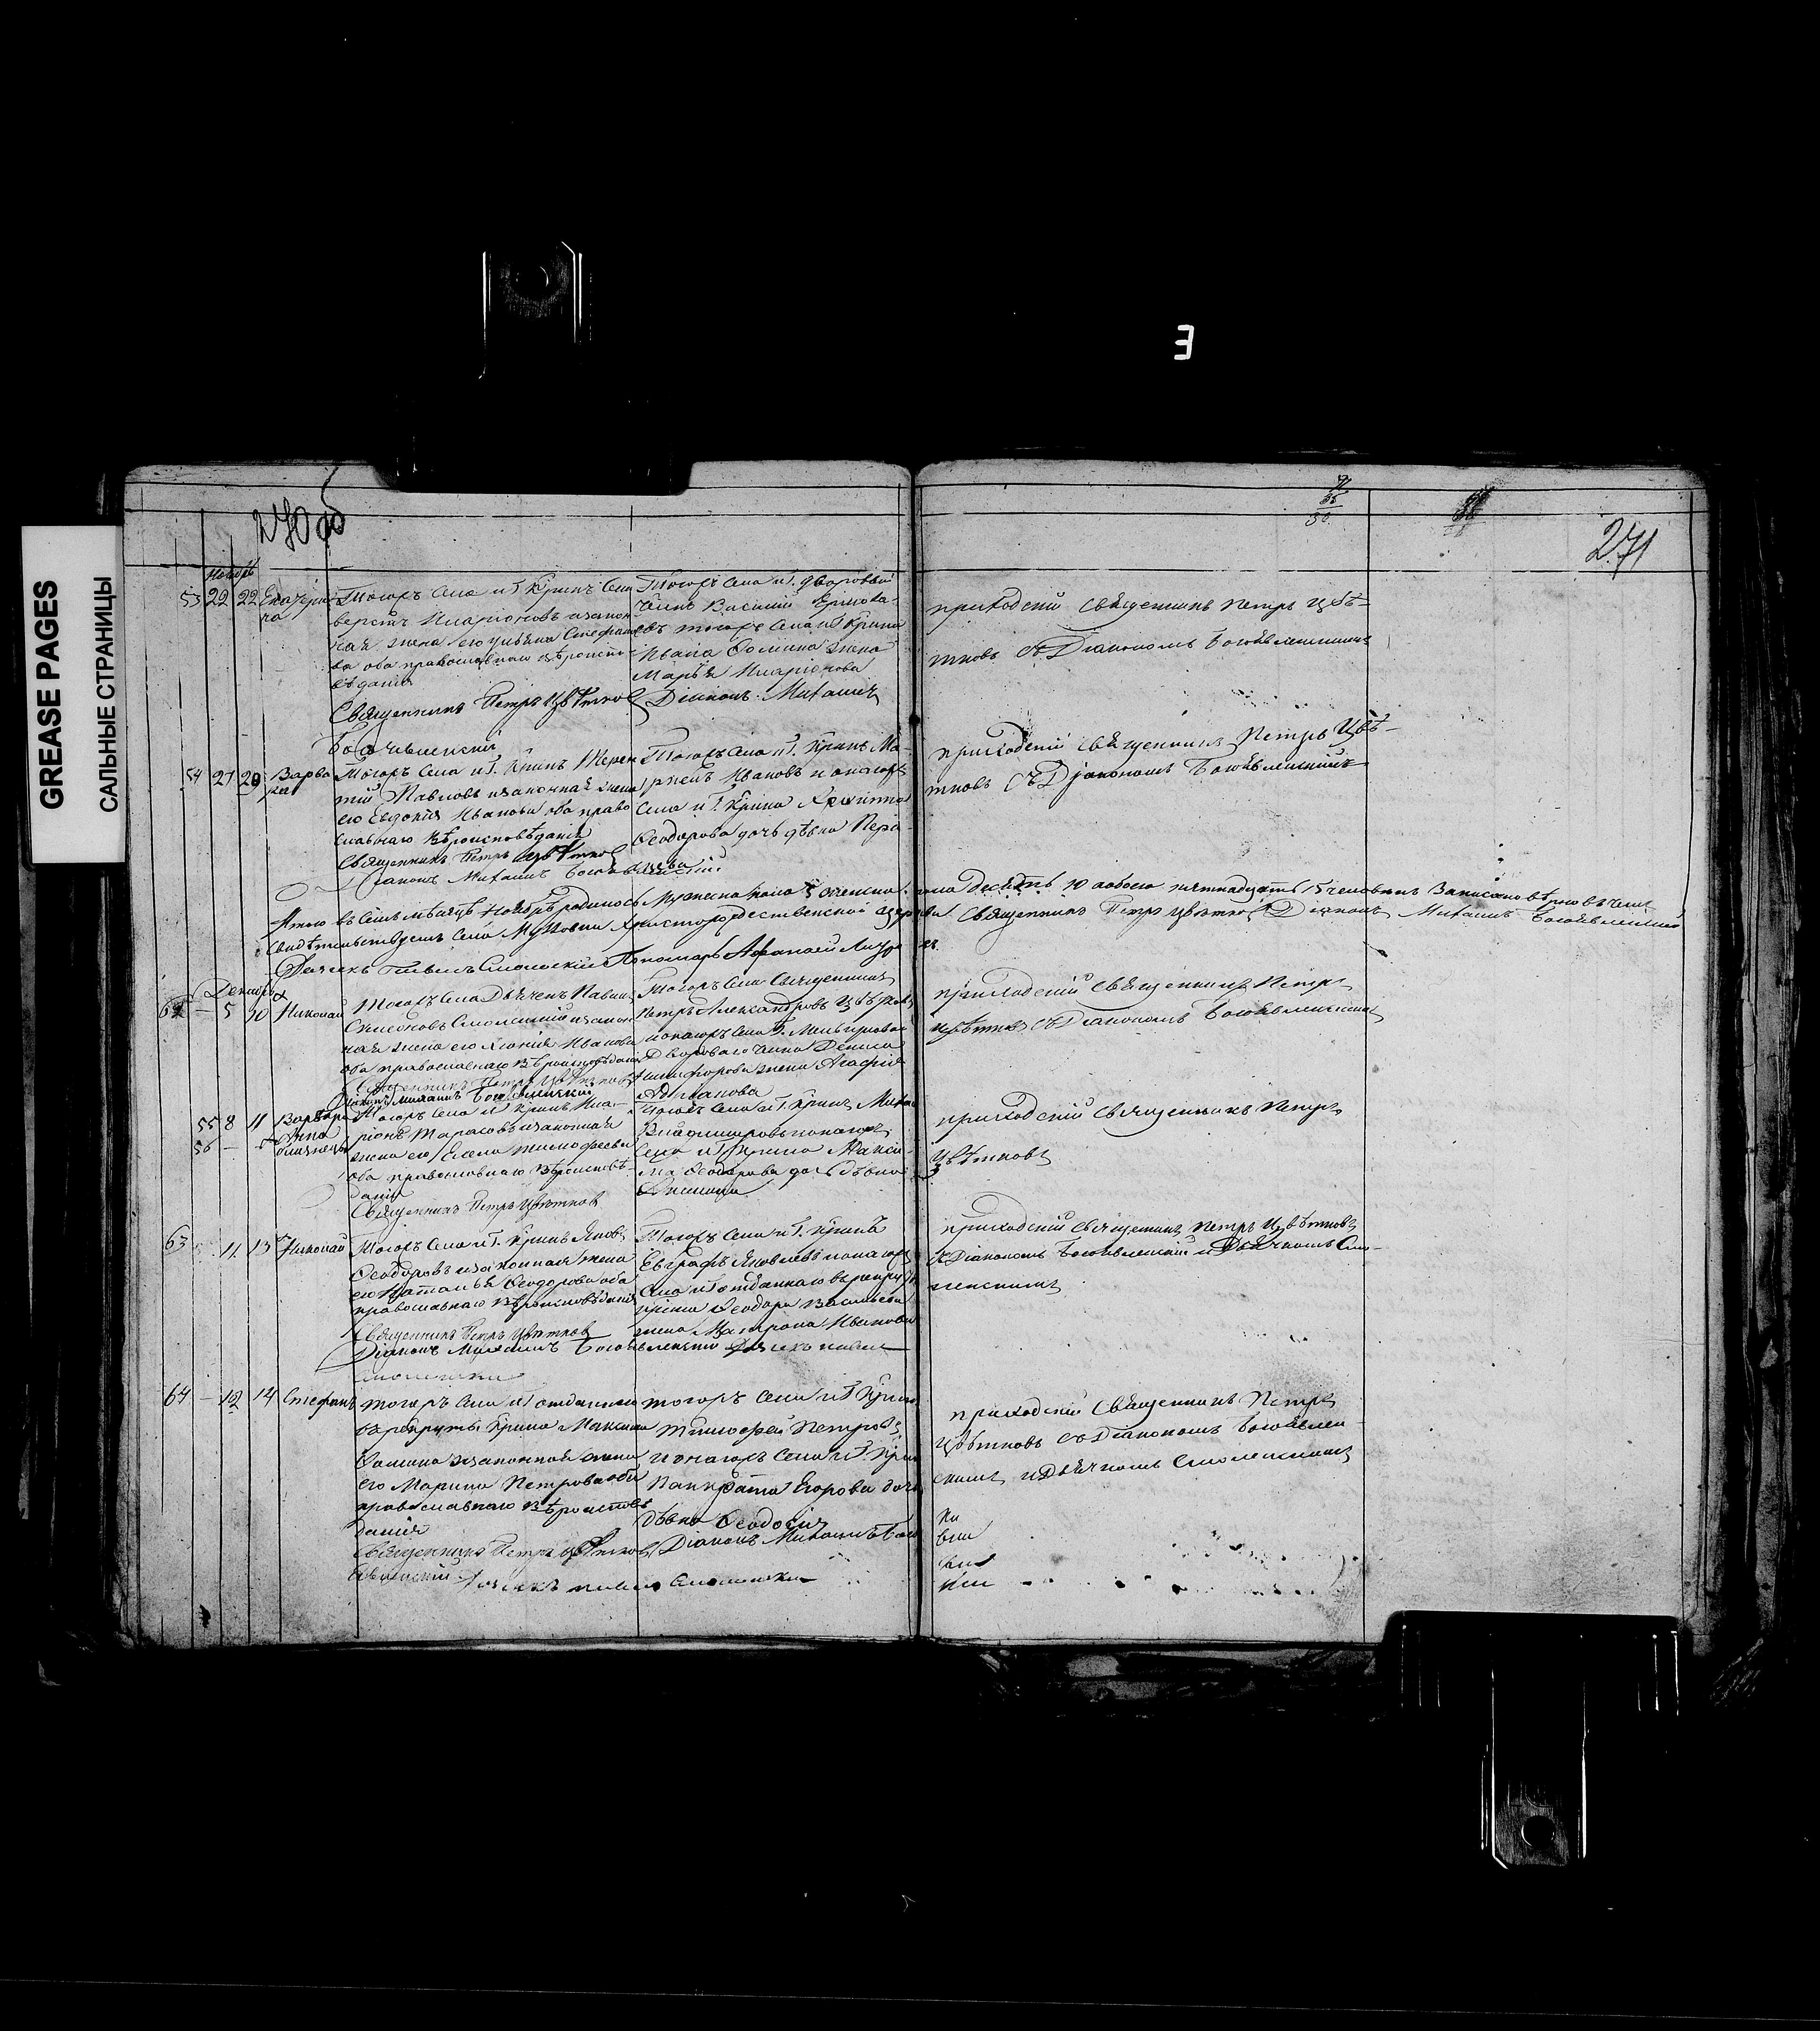 GREASE PAGES
САЛЬНЫЕ СТРАНИЦЫ
З
270 об
271
Ноябрь
53 22 22 Екатери
на
Тогожъ Села и Г. Крин: Сели
верстъ Иларіоновъ изакон
ная жена его Ульяна Стефано
ва оба православнаго вѣроиспо
вѣданія
Священникъ Петръ Цвѣтковъ
Богоявленскій
Тогожъ Села и Г. дворовый
Василій
тогожъ Села и Г. Крина
Ивана Фомина жена
Марья Иларіонова
Діаконъ Михаилъ
приходскій Священникъ Петръ Цвѣ-
тковъ съ Діакономъ Богоявленскимъ
54 27 29 Варва
ра
Тогожъ Села и Г. Кринъ Терен
тій Павловъ изаконная жена
его Евдокія Иванова оба право
славнаго Вѣроисповѣданія
Священникъ Петръ Цвѣтковъ
Діаконъ Михаилъ Богоявленскій
Тогожъ Села и Г. Кринъ Ма-
Ивановъ и онагожъ
Села и Г. Крина
Феодорова дочь дѣвка
приходскій Священникъ Петръ Цвѣ-
тковъ съ Діакономъ Богоявленскимъ
Итого въ Семъ мѣсяцѣ Ноябрѣ родилось Мужеска пола 5 женска пола Десять 10 а обоего пятнадцать 15 человекъ Записано вѣрно въ чемъ
Свидѣтельствуемъ Села Христорождественской церкви Священникъ Петръ Цвѣтковъ Діаконъ Михаилъ Богоявленскій
Дьячекъ Павелъ Смоленскій Пономарь Афанасій
Декабрь
— 5 10 Николай
Тогожъ Села Дьячекъ Павелъ
Смоленскій изакон
ная жена его Иванова
оба православнаго Вѣроисповѣданія
Священникъ Петръ Цвѣтковъ
Діаконъ Михаилъ Богоявленскій
Тогожъ Села Священникъ
Петръ Александровъ Цвѣтковъ
и онагожъ Села Г.
Двороваго Дениса
Никифорова жена Агафія
приходскій Священникъ Петръ
Цвѣтковъ съ Діакономъ Богоявленскимъ
55 8 11 Варвара
56 — Анна
близнецы
Тогожъ Села и Г. Кринъ Ила-
ріонъ Тарасовъ изаконная
жена его Елена Тимофеева
оба православнаго Вѣроисповѣ-
данія
Священникъ Петръ Цвѣтковъ
Тогожъ Села и Г. Кринъ
Владимировъ и онагожъ
Села и Г. Крина Макси-
ма Феодорова дочь дѣвка
приходскій Священникъ Петръ
Цвѣтковъ
63 11 13 Николай
Тогожъ Села и Г. Кринъ Яковъ
Феодоровъ изаконная жена
его Наталья Феодорова оба
православнаго Вѣроисповѣданія
Священникъ Петръ Цвѣтковъ
Діаконъ Михаилъ Богоявленскій Дьячекъ Павелъ
Смоленскій
Тогожъ Села и Г. Кринъ
Евграфъ Яковлевъ и онагожъ
Села и Г. отданнаго въ рекруты
Крина Феодора Васильева
жена Матрона Иванова
приходскій Священникъ Петръ Цвѣтковъ
съ Діакономъ Богоявленскимъ и Дьячкомъ Смо-
ленскимъ
64 — 12 14 Стефанъ
тогожъ Села и Г отданнаго
въ рекруты Крина Максима
Фомина изаконная жена
его Марина Петрова оба
православнаго Вѣроисповѣ
данія
Священникъ Петръ Цвѣтковъ Діаконъ Михаилъ Бого
явленскій Дьячекъ Павелъ Смоленскій
тогожъ Села и Г Кринъ
Тимофей Петровъ
и онагожъ Села и Г. Крина
Панкрата Егорова дочь
дѣвка Феодосія
приходскій Священникъ Петръ
Цвѣтковъ съ Діакономъ Богоявлен-
скимъ и Дьячкомъ Смоленскимъ